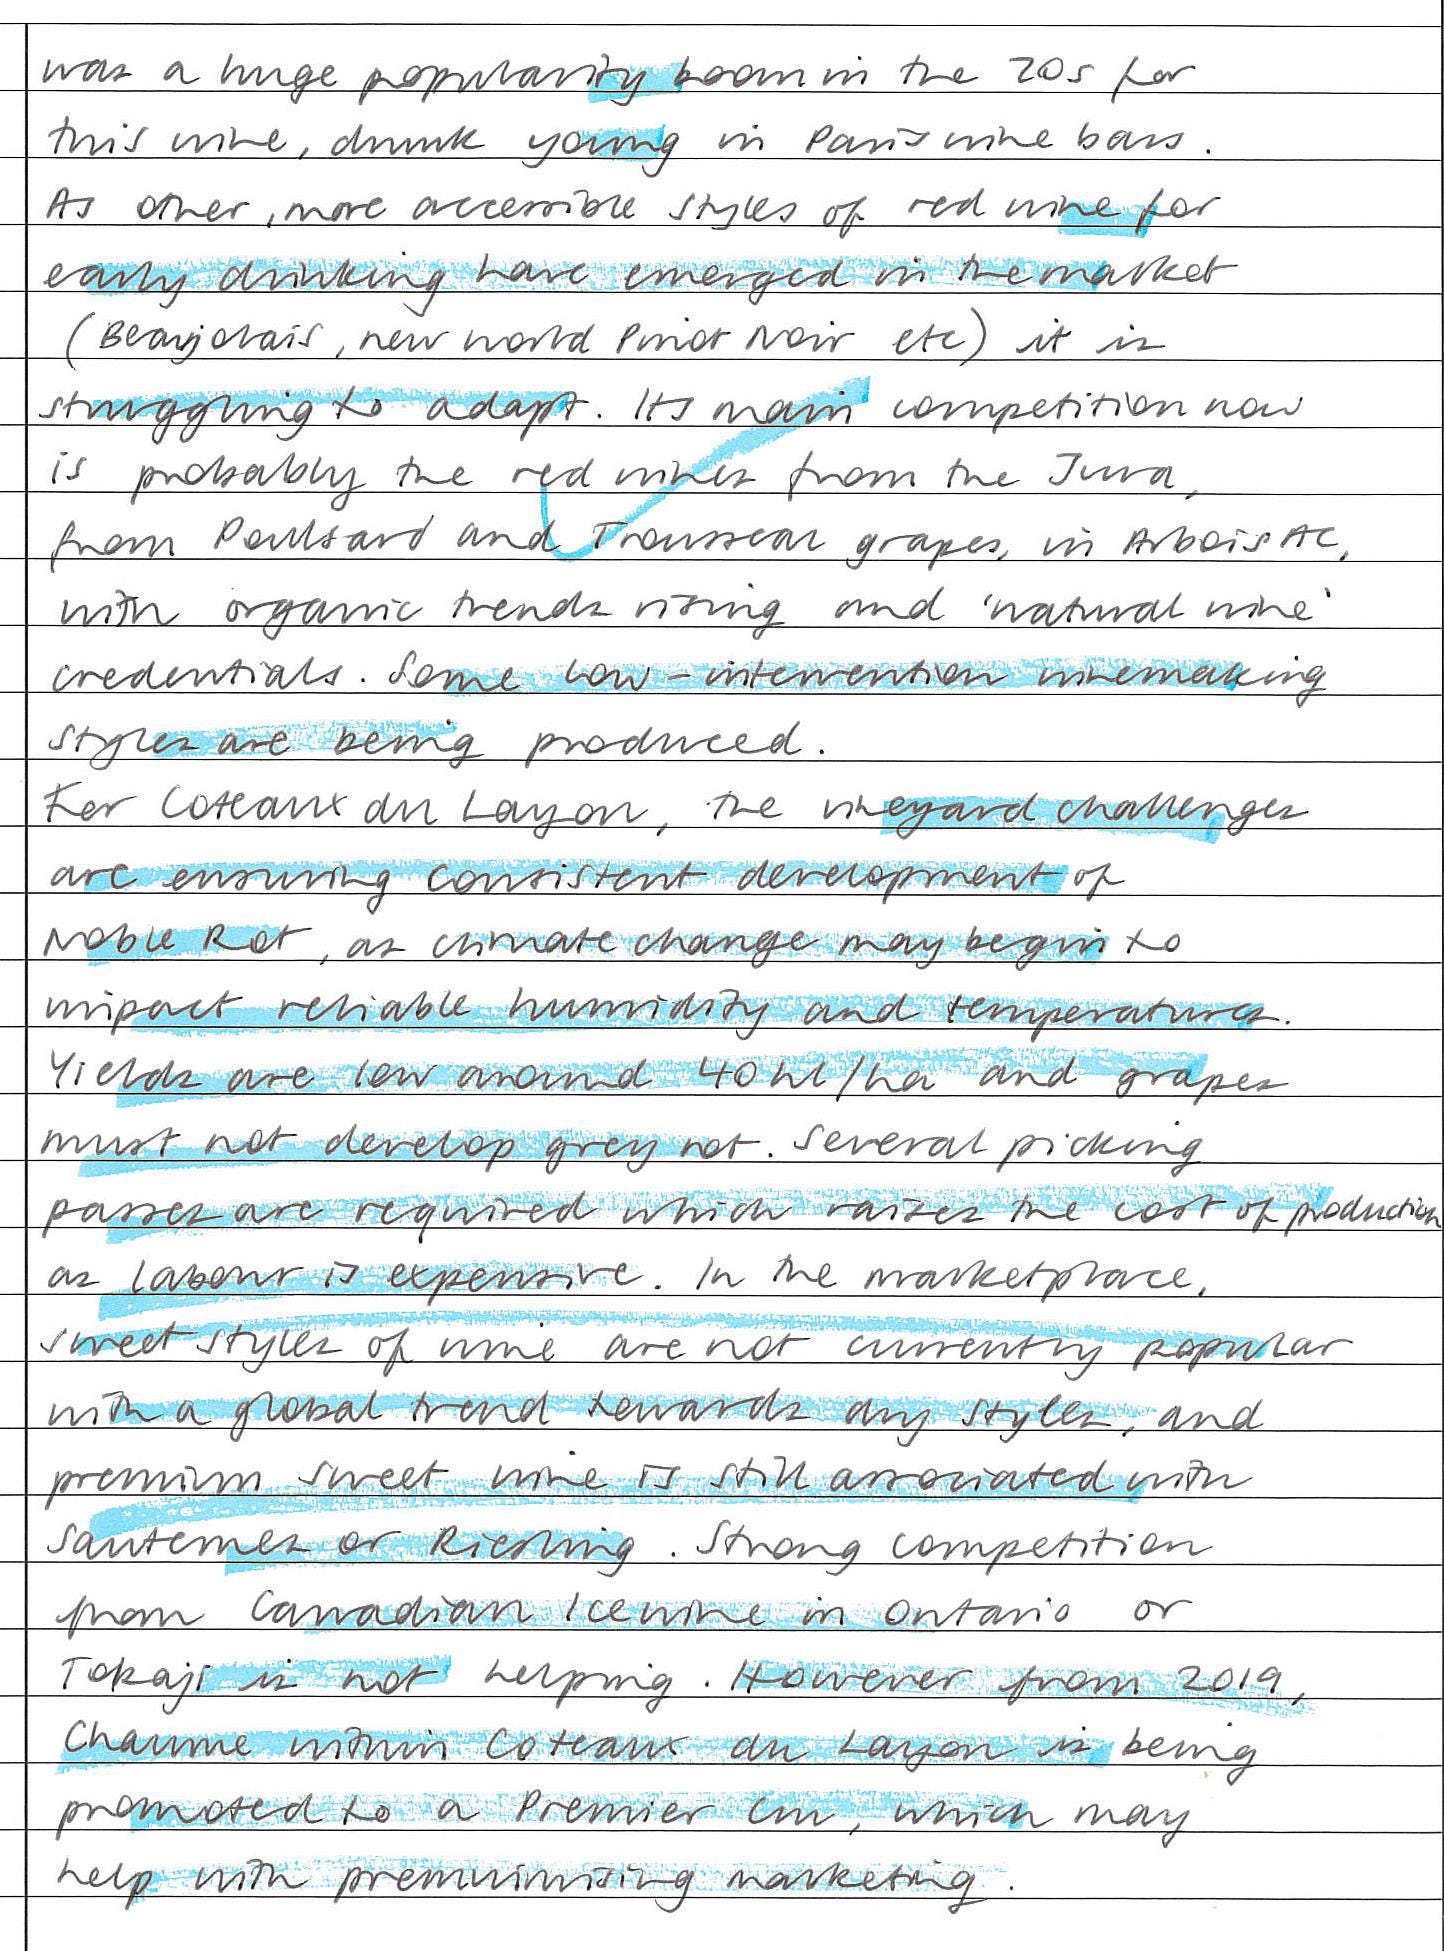 was a huge popularity boom in the 70s for
this wine, drunk young in Paris wine bars.
As other, more accessible styles of red wine for
early drinking have emerged in the market
(Beaujolais, new world Pinot Noir etc) it is
struggling to adapt. Its main competition now
is probably the red wines from the Jura,
from Poulsard and Trousseau grapes, in Arbois AC,
with organic trends rising and 'natural wine'
credentials. Some low-intervention winemaking
styles are being produced.
For Coteaux du Layon, the vineyard challenges
are ensuring consistent development of
Noble Rot, as climate change may begin to
impact reliable humidity and temperatures.
Yields are low around 40hl/ha and grapes
must not develop grey rot. Several picking
passes are required which raises the cost of production
as labour is expensive. In the marketplace,
sweet styles of wine are not currently popular
with a global trend towards dry styles, and
premium sweet wine is still associated with
Sauternes or Riesling. Strong competition
from Canadian Icewine in Ontario or
Tokaji is not helping. However from 2019,
Chaume within Coteaux du Layon is being
promoted to a Premier Cru, which may
help with premiumising marketing.